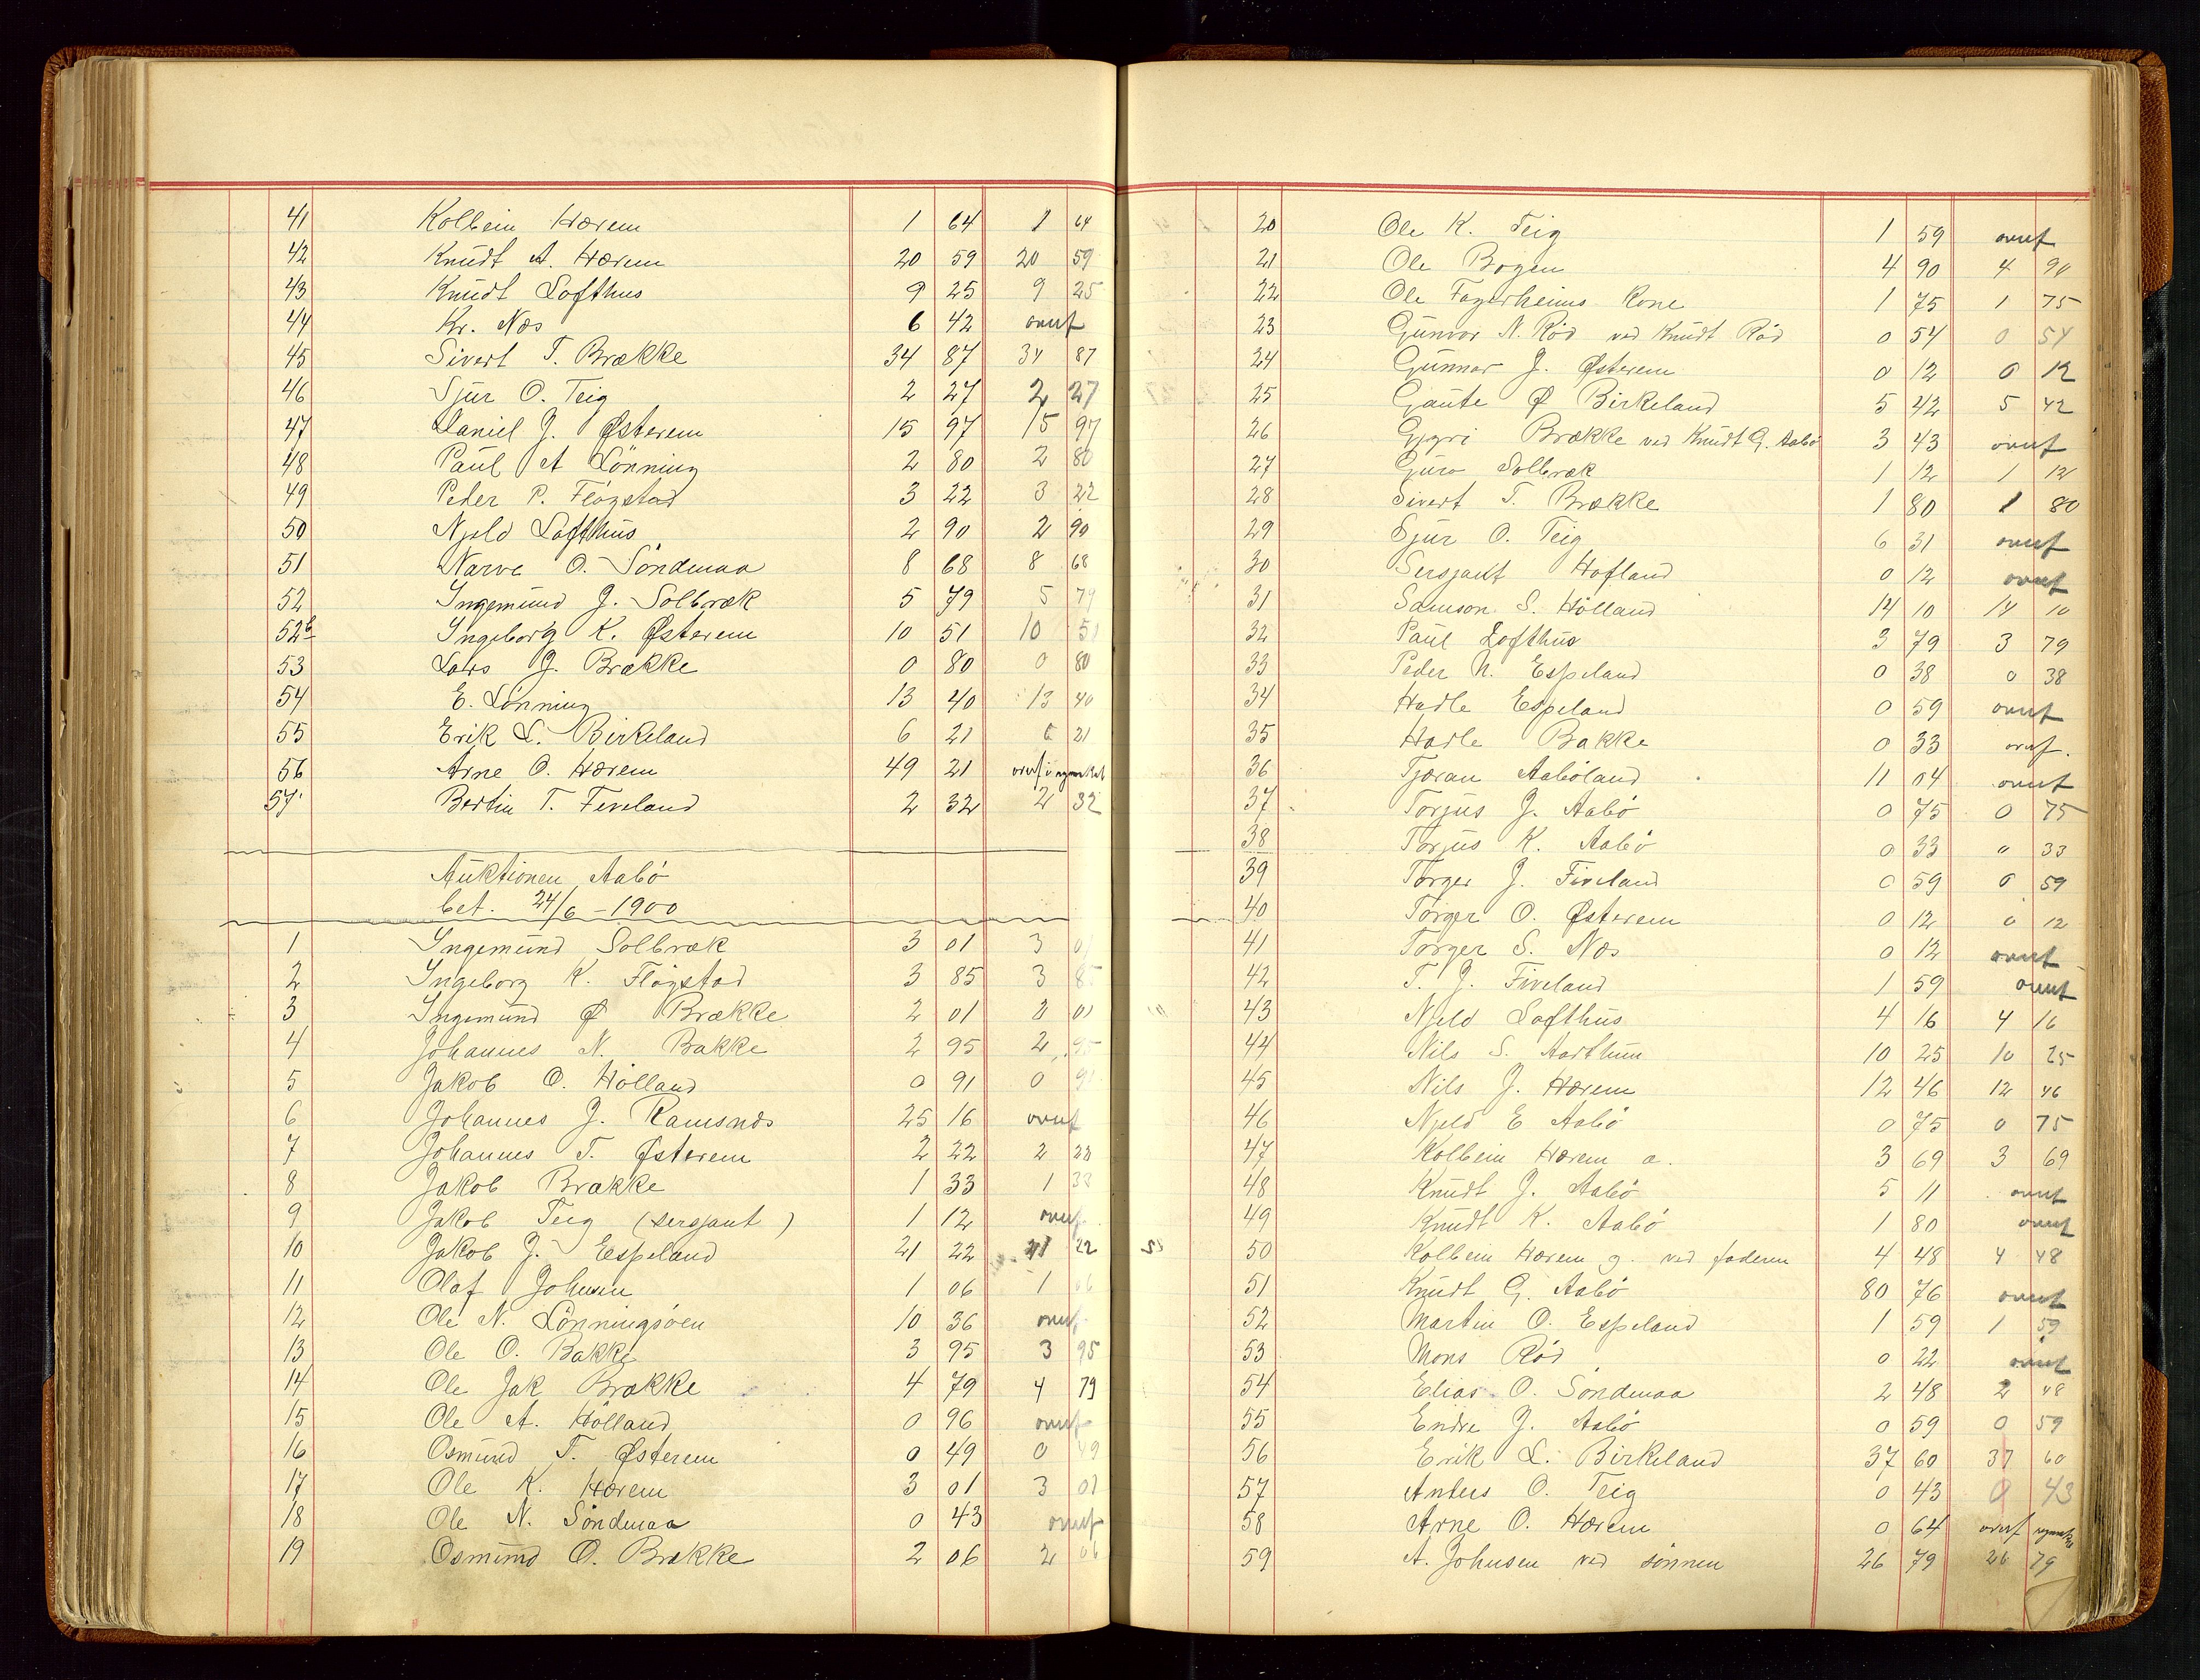 41 Kolbein Hærem 1 64 1 64
42 Knudt A. Hærem 20 59 20 59
43 Knudt Lofthus 9 25 9 25
44 Kr. Næs 6 42 overf
45 Sivert T. Brække 34 87 34 87
46 Sjur O. Teig 2 27 2 27
47 Daniel J. Østerem 15 97 15 97
48 Paul A Lönning 2 80 2 80
49 Peder P. Flógstad 3 22 3 22
50 Njeld Lofthus 2 90 2 90
51 Narve O. Söndenaa 8 68 8 68
52 Ingemund J. Solbræk 5 79 5 79
52b Ingeborg K. Østerem 10 51 10 51
53 Lars J. Brække 0 80 0 80
54 E. Lönning 13 40 13 40
55 Erik L. Birkeland 6 21 6 21
56 Arne O. Hærem 49 21 overf
57 Bertin T. Feveland 2 32 2 32
Auktionen Aabö
bet. 24/6 - 1900
1 Ingemund Solbræk 3 01 3 01
2 Ingeborg K. Flógstad 3 85 3 85
3 Ingemund Ø Brække 2 01 2 01
4 Johannes N. Bakke 2 95 2 95
5 Jakob O. Hólland 0 91 0 91
6 Johannes J. Ramsnæs 25 16 overf
7 Johannes T. Østerem 2 22 2 22
8 Jakob Brække 1 33 1 33
9 Jakob Teig (sersjant) 1 12 overf
10 Jakob J. Espeland 21 22 21 22
11 Olaf Johnsen 1 06 1 06
12 Ole N. Lönningsöen 10 36 overf
13 Ole O. Bakke 3 95 3 95
14 Ole Jak Brække 4 79 4 79
15 Ole A. Hólland 0 96 overf
16 Osmund T. Østerem 0 49 0 49
17 Ole K. Hærem 3 01 3 01
18 Ole N. Söndenaa 0 43 overf
19 Osmund O. Brække 2 06 2 06
20 Ole K. Teig 1 59 overf
21 Ole Bogen 4 90 4 90
22 Ole Fagerheims Kone 1 75 1 75
23 Gunvor N. Rød ved Knudt Rød 0 54 0 54
24 Gunnar J. Østerem 0 12 0 12
25 Gaute Ø Birkeland 5 42 5 42
26 Gyri Brække ved Knudt G. Aabö 3 43 overf
27 Guro Solbræk 1 12 1 12
28 Sivert T. Brække 1 80 1 80
29 Sjur O. Teig 6 31 overf
30 Sersjant Hofland 0 12 overf
31 Samson S. Hölland 14 10 14 10
32 Paul Lofthus 3 79 3 79
33 Peder N. Espeland 0 38 0 38
34 Hadle Espeland 0 59 overf
35 Hadle Bakke 0 33 overf.
36 Tjæran Aaböland 11 04 overf
37 Torjus J. Aabö 0 75 0 75
38 Torjus K. Aabö 0 33 " 33
39 Torger J. Fiveland 0 59 0 59
40 Torger O. Østerem 0 12 0 12
41 Torger S. Næs 0 12 overf
42 T. J. Fiveland 1 59 overf
43 Njeld Lofthus 4 16 4 16
44 Nils S. Aarthun 10 25 10 25
45 Nils J. Hærem 12 46 12 46
46 Njeld E Aabö 0 75 0 75
47 Kolbein Hærem a. 3 69 3 69
48 Knudt J. Aabö 5 11 overf
49 Knudt K. Aabö 1 80 overf
50 Kolbein Hærem g. ved faderen 4 48 4 48
51 Knudt G. Aabö 80 76 overf
52 Martin O. Espeland 1 59 1 59
53 Mons Rød 0 22 overf
54 Elias O. Söndenaa 2 48 2 48
55 Endre J. Aabö 0 59 0 59
56 Erik L. Birkeland 37 60 37 60
57 Anters O. Teig 0 43 0 43
58 Arne O. Hærem 0 64 overf
59 A. Johnsen ved sönnen 26 79 26 79